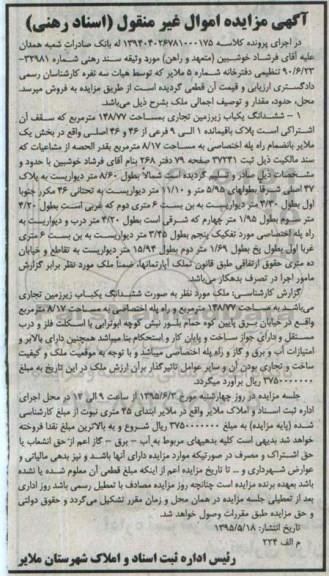 آگهی مزایده اموال غیر منقول (اسناد رهنی)
در اجرای پرونده کلاسه ۱۳۹۴۰۴۰۲۶۷۸۱۰۰۰۱۷۵ له بانک صادرات شعبه همدان
علیه آقای فرشاد خوشبین (متعهد و راهن) مورد وثیقه سند رهنی شماره ۳۲۹۸۱-
۹۰/۶/۲۳ تنظیمی دفترخانه شماره ۵ ملایر که توسط هیات سه نفره کارشناسان رسمی
دادگستری ارزیابی و قیمت آن قطعی گردیده است از طریق مزایده به فروش میرسد.
محل، حدود، مقدار و توصیف اجمالی ملک بشرح ذیل می‌باشد.
۱ - ششدانگ یکباب زیرزمین تجاری بمساحت ۱۴۸/۷۷ مترمربع که سقف آن
اشتراکی است پلاک باقیمانده ۱ الی ۹ فرعی از ۴۶ و ۴۶ اصلی واقع در بخش یک
ملایر بانضمام راه پله اختصاصی به مساحت ۸/۱۷ مترمربع بقدر الحصه از مشاعیات که
سند مالکیت ذیل ثبت ۳۷۲۴۱ صفحه ۷۹ دفتر ۲۶۸ بنام آقای فرشاد خوشبین با حدود و
مشخصات ذیل صادر و تسلیم گردیده است شمالا بطول ۸/۶۰ متر دیواریست به پلاک
۴۷ اصلی شرقا بطولهای ۵/۹۵ متر و ۱۱/۱۰ متر دیواریست به تحتانی ۴۶ مکرر جنوبا
اول بطول ۴/۳۰ متر دیواریست به بن بست ۶ متری دوم که غربی است بطول ۴/۲۰
متر سوم بطول ۱/۹۵ متر چهارم که شرقی است بطول ۴/۲۰ متر درب و دیواریست به
راه پله اختصاصی مورد تفکیک پنجم بطول ۳/۲۵ متر دیواریست به بن بست ۶ متری
غربا اول بطول پخ بطول ۱/۶۹ متر دوم بطول ۱۵/۹۴ متر دیواریست به تقاطع و خیابان
ده متری حقوق ارتفاقی طبق قانون تملک آپارتمانها، ضمنا ملک مورد نظر برابر گزارش
مامور اجرا در تصرف بدهکار می‌باشد.
گزارش کارشناسی: ملک مورد نظر به صورت ششدانگ یکباب زیرزمین تجاری
می‌باشد به مساحت ۱۴۸/۷۷ مترمربع و راه پله اختصاصی به مساحت ۸/۱۷ مترمربع
واقع در خیابان برق پایین کوه حمام بلور نبش کوچه ابوترابی با اسکلت فلز و درب
مستقل و دارای جواز ساخت و پایان کار و استحکام بنا میباشد همچنین دارای بالابر و
امتیازات آب و برق و گاز و راه پله اختصاصی میباشد و با توجه به موقعیت ملک و کیفیت
ساخت و تجاری بودن آن و سایر عوامل تاثیرگذار برآن ارزش ملک در این تاریخ به مبلغ
۳۷۵۰۰۰۰۰۰۰ ریال برآورد میگردد.
جلسه مزایده در روز چهارشنبه مورخ ۱۳۹۵/۶/۳ از ساعت ۹ الی ۱۲ در محل اجرای
اداره ثبت اسناد و املاک ملایر واقع در ملایر ابتدای ۴۵ متری نبوت از مبلغ کارشناسی
شده (پایه مزایده) به مبلغ ۳۷۵۰۰۰۰۰۰۰ ریال شروع و به بالاترین مبلغ نقدا فروخته
خواهد شد بدیهی است کلیه بدهیهای مربوط به آب - برق - گاز اعم از: حق انشعاب یا
حق اشتراک و مصرف در صورتیکه مورد مزایده دارای آنها باشد و نیز بدهی مالیاتی و
عوارض شهرداری و ... تا تاریخ مزایده اعم از اینکه مبلغ قطعی آن معلوم شده یا نشده
باشد بعهده برنده مزایده است چنانچه روز مزایده مصادف با تعطیل رسمی باشد روز اداری
بعد از تعطیلی جلسه مزایده در همان محل و زمان مقرر تشکیل می‌گردد و حقوق دولتی
و حق مزایده طبق مقررات وصول خواهد شد.
تاریخ انتشار: ۱۳۹۵/۵/۱۸
م الف ۲۲۴
رئیس اداره ثبت اسناد و املاک شهرستان ملایر